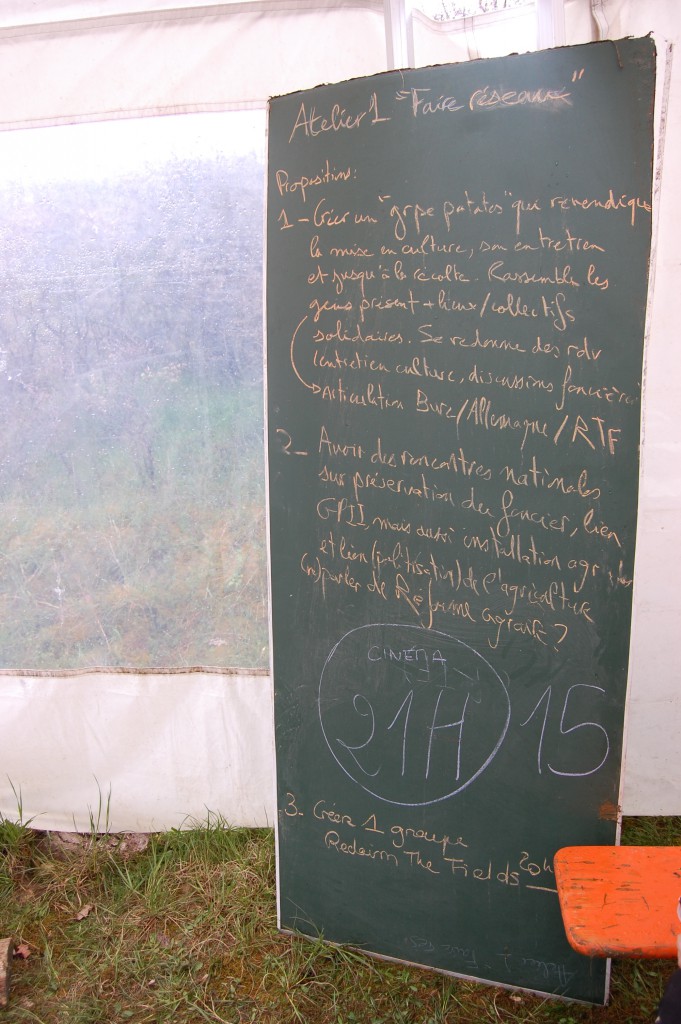 Atelier 1 "Faire réseaux"
Propositions:
1 - Créer un "grpe patates" qui revendique
la mise en culture, son entretien
et jusqu'à la récolte. Rassembler les
gens présent + lieux/collectifs
solidaires. Se redonne des rdv
(entretien culture, discussions
→ Articulation Bure/Allemagne/RTF
2 - Avoir des rencontres nationales
sur préservation du foncier, lien
GPII, mais aussi installation
et lien (politisation) de l'agriculture
(re)parler de Réforme agraire?
CINEMA
21H 15
3 - Créer 1 groupe
Reclaim The Fields 20h
Atelier 1